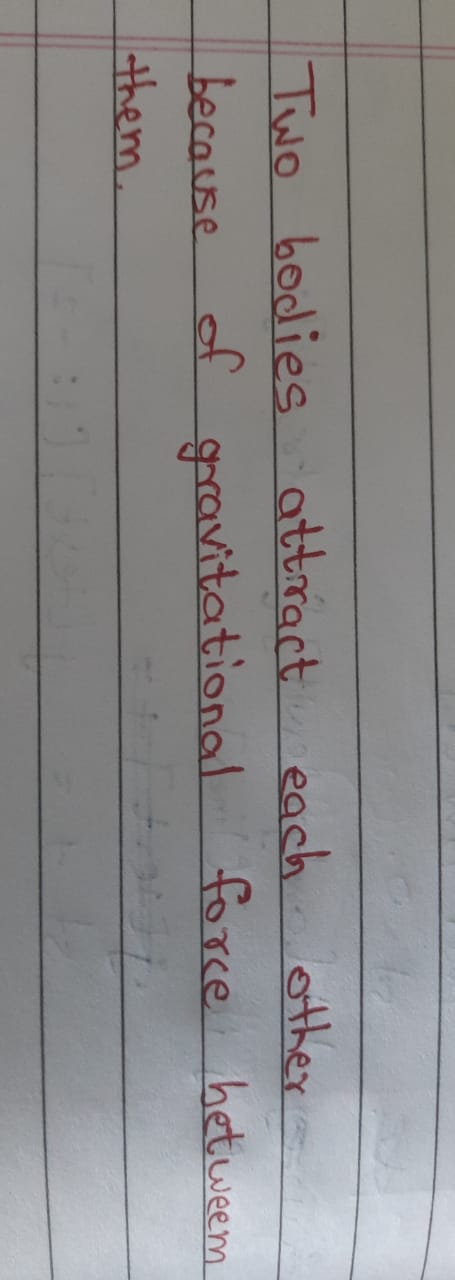 Two bodies attract each other
because of gravitational force betweem
them.